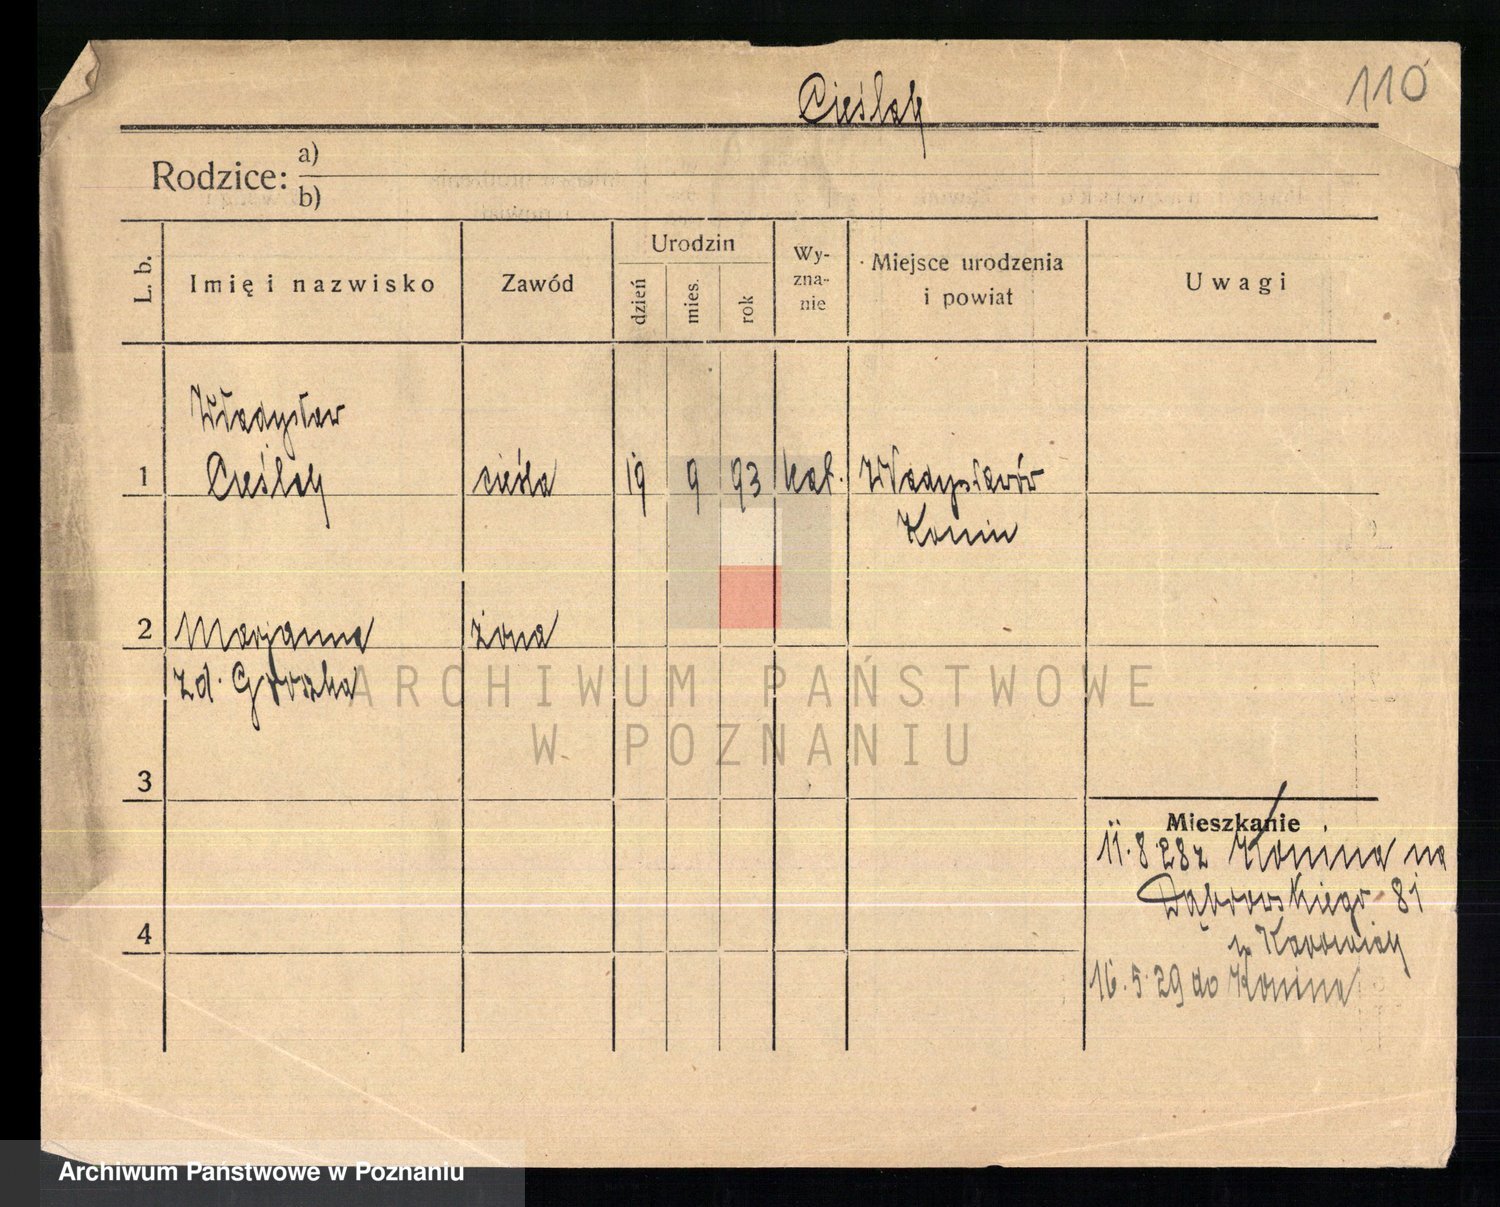 Cieślak
110
Rodzice: a)
b)
L. b.
Imię i nazwisko
Zawód
Urodzin
dzień
mies.
rok
Wy-
zna-
nie
Miejsce urodzenia
i powiat
Uwagi
Władysław
1 Cieślak cieśla 19 9 93 kat. Władysławów
Konin
2 Marjanna żona
zd. Groszka
ARCHIWUM PAŃSTWOWE
W POZNANIU
3
Mieszkanie
11.8.28 z Konina na
Dąbrowskiego 81
4
16.5.29 do Konina
Archiwum Państwowe w Poznaniu